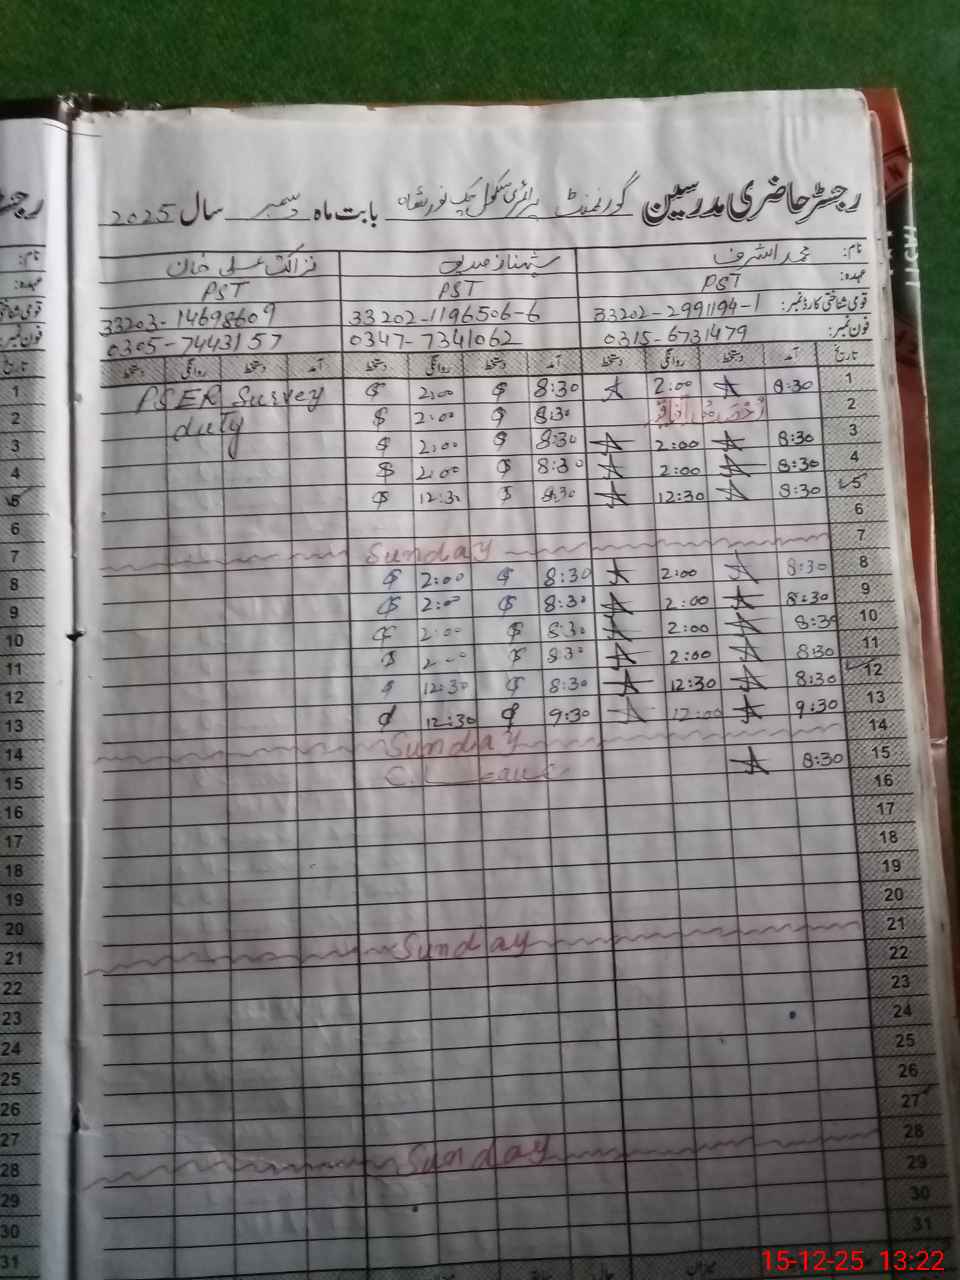 رجسٹر حاضری مدرسین گورنمنٹ پرائمری سکول چک نورشاہ بابت ماہ دسمبر سال 2025
نام: محمد اشرف شہناز صدیق نزاکت علی خان
عہدہ: PST PST PST
قومی شناختی کارڈ نمبر: 33202-2991194-1 33202-1196506-6 33203-14698609
فون نمبر: 0315-6731479 0347-7341062 0305-7443157
تاریخ آمد دستخط روانگی دستخط آمد دستخط روانگی دستخط آمد دستخط روانگی دستخط
1 8:30 2:00 8:30 2:00 PSER Survey
2 8:30 2:00 duty
3 8:30 2:00 8:30 2:00
4 8:30 2:00 8:30 2:00
5 8:30 12:30 8:30 12:30
6
7 Sunday
8 8:30 2:00 8:30 2:00
9 8:30 2:00 8:30 2:00
10 8:30 2:00 8:30 2:00
11 8:30 2:00 8:30 2:00
12 8:30 12:30 8:30 12:30
13 9:30 12:00 9:30 12:30
14 Sunday
15 8:30 C. Leave
16
17
18
19
20
21 Sunday
22
23
24
25
26
27
28 Sunday
29
30
31
15-12-25 13:22